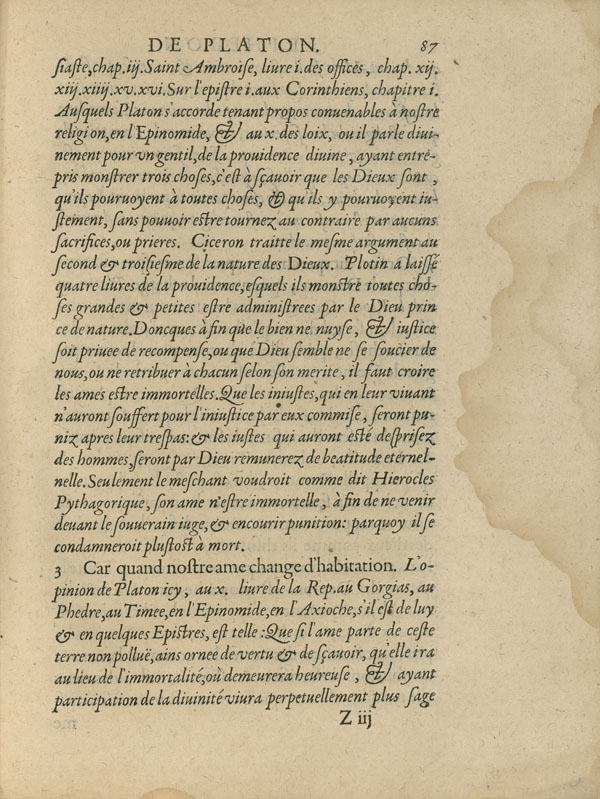 DE PLATON. 87
siaste, chap. iij. Saint Ambroise, liure i. des offices, chap. xij.
xiij. xiiij. xv. xvi. Sur l'epistre i. aux Corinthiens, chapitre i.
Ausquels Platon s'accorde tenant propos conuenables à nostre
religion, en l'Epinomide, & au x. des loix, ou il parle diui-
nement pour vn gentil, de la prouidence diuine, ayant entre-
pris monstrer trois choses, c'est à sçauoir que les Dieux sont,
qu'ils pouruoyent à toutes choses, & qu'ils y pouruoyent iu-
stement, sans pouuoir estre tournez au contraire par aucuns
sacrifices, ou prieres. Ciceron traitte le mesme argument au
second & troisiesme de la nature des Dieux. Plotin à laissé
quatre liures de la prouidence, esquels ils monstre toutes cho-
ses grandes & petites estre administrees par le Dieu prin
ce de nature. Doncques à fin que le bien ne nuyse, & iustice
soit priuee de recompense, ou que Dieu semble ne se soucier de
nous, ou ne retribuer à chacun selon son merite, il faut croire
les ames estre immortelles. Que les iniustes, qui en leur viuant
n'auront souffert pour l'iniustice par eux commise, seront pu-
niz apres leur trespas: & les iustes qui auront esté desprisez
des hommes, seront par Dieu remunerez de beatitude eternel-
nelle. Seulement le meschant voudroit comme dit Hierocles
Pythagorique, son ame n'estre immortelle, à fin de ne venir
deuant le souuerain iuge, & encourir punition: parquoy il se
condamneroit plustost à mort.
3 Car quand nostre ame change d'habitation. L'o-
pinion de Platon icy, au x. liure de la Rep. au Gorgias, au
Phedre, au Timee, en l'Epinomide, en l'Axioche, s'il est de luy
& en quelques Epistres, est telle: Que si l'ame parte de ceste
terre non polluë, ains ornee de vertu & de sçauoir, qu'elle ira
au lieu de l'immortalité, où demeurera heureuse, & ayant
participation de la diuinité viura perpetuellement plus sage
Z iij